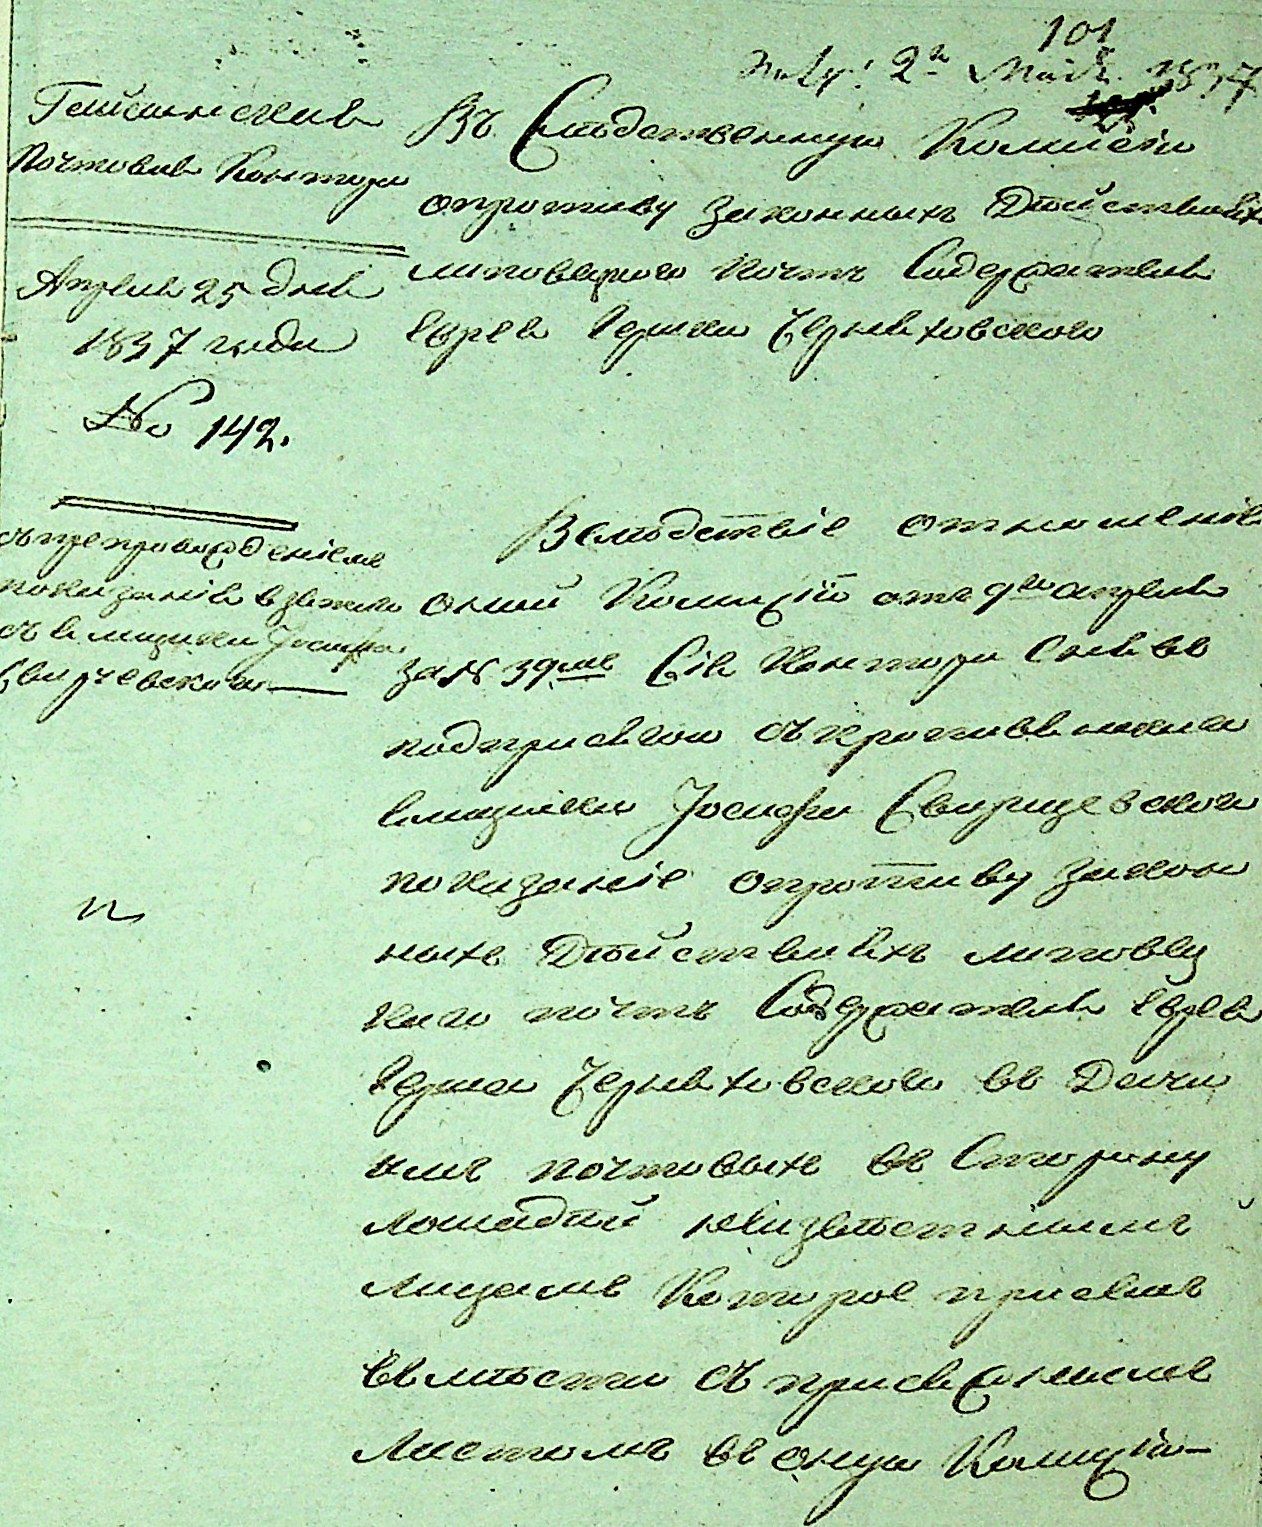 101
2го Мая 1837
Гайсинская
Почтовая Контора
Апреля 25 дня
1837 года
No 142.
съ препровожденіемъ
показанія взятаго
съ ямщика Іосифа
Свирчевскаго
Въ Слѣдственную Комисію
опротиву законныхъ Дѣйствіяхъ
липовецкого почтъ Содержателя
Еврея Герша Черняховского
Вслѣдствіе отношенія
оной Комиціи отъ 9го апреля
за N 39мъ Сія Контора снявъ
подприсягою съ
ямщика Іосифа Свирщевского
показаніе опротиву закон
ныхъ Дѣйствіяхъ липовец
каго почтъ Содержателя Еврея
Герша Черняховского въ Дачи
имъ почтовыхъ въ Сторону
Лошадей неизвѣстнымъ
лицамъ Которое
вмѣсти съ присяжнымъ
Листомъ въ оную Комицію